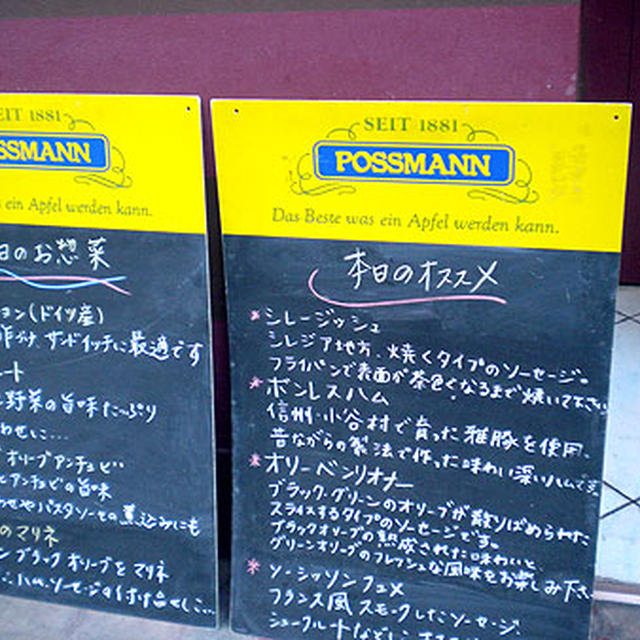 EIT 1881
SSMANN
ein Apfel werden kann.
日のお惣菜
ョン(ドイツ産)
サンドイッチに最適です
ート
野菜の旨味たっぷり
わせに…
オリーブアンチョビ
アンチョビの旨味
わせやパスタソースの煮込みにも
のマリネ
ンブラックオリーブをマリネ
ハム、ソーセージの付け合せに…
SEIT 1881
POSSMANN
Das Beste was ein Apfel werden kann.
本日のオススメ
*シレージッシュ
シレジア地方、焼くタイプのソーセージ。
フライパンで表面が茶色くなるまで焼いて下さい
*ボンレスハム
信州・小谷村で育った雅豚を使用、
昔ながらの製法で作った味わい深いハムです
*オリーベンリオナー
ブラック・グリーンのオリーブが散りばめられた
スライスするタイプのソーセージです。
ブラックオリーブの熟成された味わいと、
グリーンオリーブのフレッシュな風味をお楽しみ下さい
*ソーシッソンフュメ
フランス風スモークしたソーセージ
シュークルートなどに